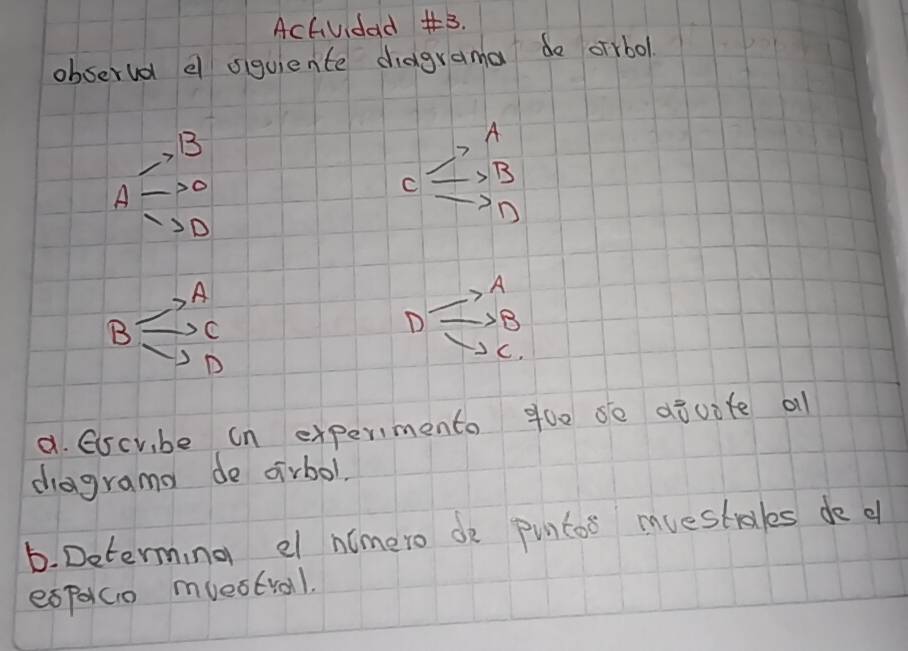 Actividad #3.
observa el siguiente diagrama de arbol.
B
A → o
D
A
C → B
D
A
B → C
D
A
D → B
C.
a. Escribe un experimento que se ajuste al
diagrama de árbol.
b. Determina el número de puntos muestrales de el
espacio muestral.